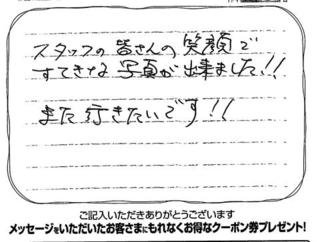 スタッフの皆さんの笑顔で
すてきな写真が出来ました!!
また行きたいです!!
ご記入いただきありがとうございます
メッセージをいただいたお客さまにもれなくお得なクーポン券プレゼント!